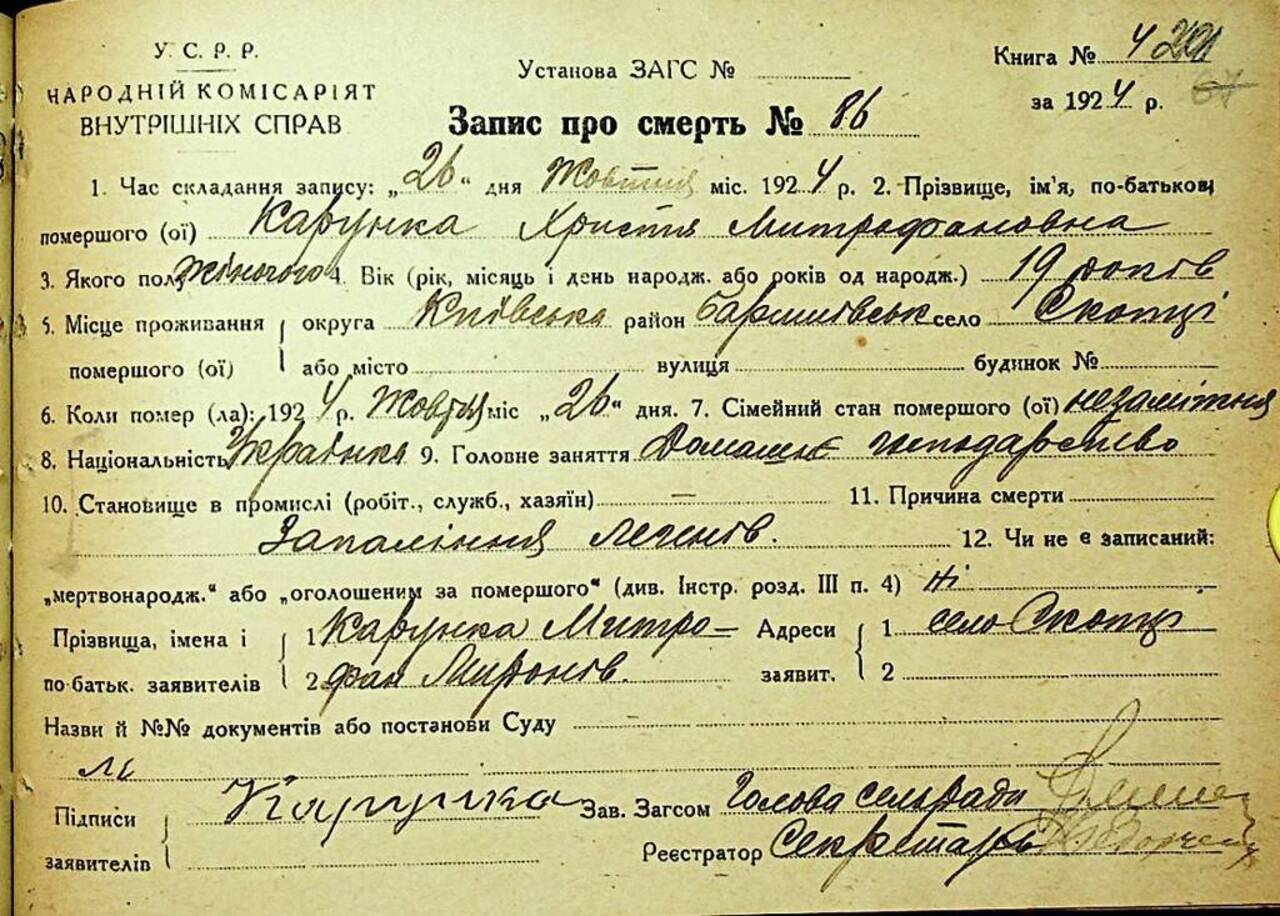 У. С. Р. Р.
НАРОДНІЙ КОМІСАРІЯТ
ВНУТРІШНІХ СПРАВ
Установа ЗАГС №
Книга № 4
за 1924 р. 67
Запис про смерть № 86
1. Час складання запису: „26“ дня Жовтня міс. 1924 р. 2. Прізвище, ім'я, по-батькові
помершого (ої) Кавунка Христя Митрофановна
3. Якого полу жіночого 4. Вік (рік, місяць і день народж. або років од народж.) 19 років
5. Місце проживання округа Київська район Баришівськ село Скопці
помершого (ої) або місто вулиця будинок №
6. Коли помер (ла): 1924 р. Жовтня міс „26“ дня. 7. Сімейний стан помершого (ої) незаміжня
8. Національність Українка 9. Головне заняття Домашнє господарство
10. Становище в промислі (робіт., служб., хазяїн) — 11. Причина смерти
Запаління легенів. 12. Чи не є записаний:
„мертвонародж.“ або „оголошеним за помершого“ (див. Інстр. розд. III п. 4) ні
Прізвища, імена і 1 Кавунка Митро- Адреси 1 село Скопці
по-батьк. заявителів 2 фан Миронів. заявит. 2
Назви й №№ документів або постанови Суду —
Підписи Зав. Загсом Голова сельради
заявителів Реєстратор Секретарь